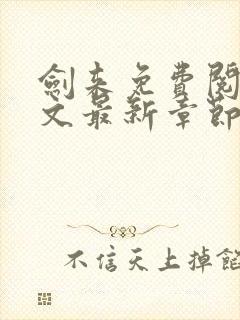 劍来免費閱
文最新章節
不信天上掉餡